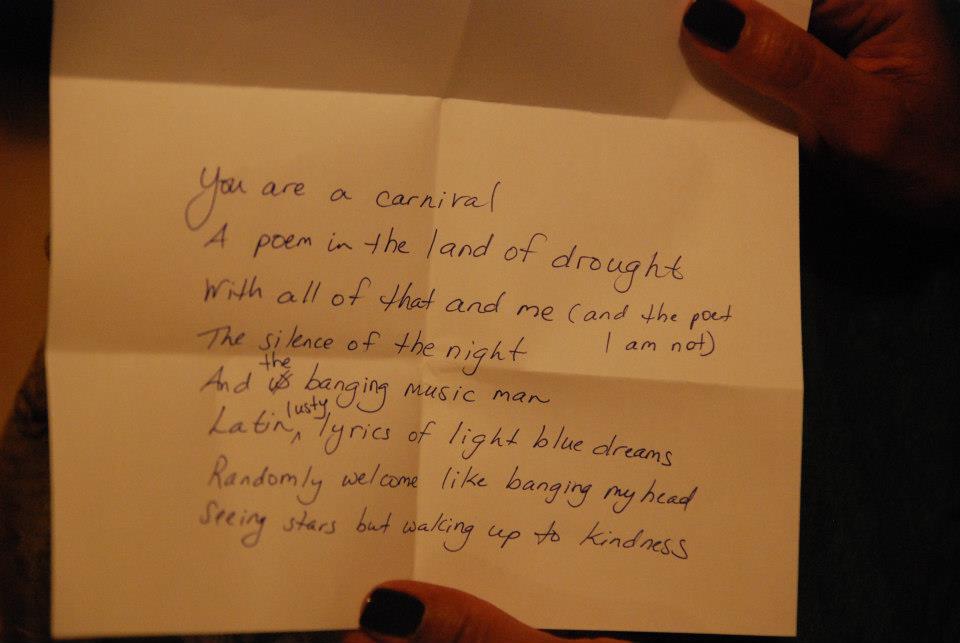 You are a carnival
A poem in the land of drought
With all of that and me (and the poet
I am not)
The silence of the night
And the banging music man
Latin, lusty lyrics of light blue dreams
Randomly welcome like banging my head
Seeing stars but waking up to kindness